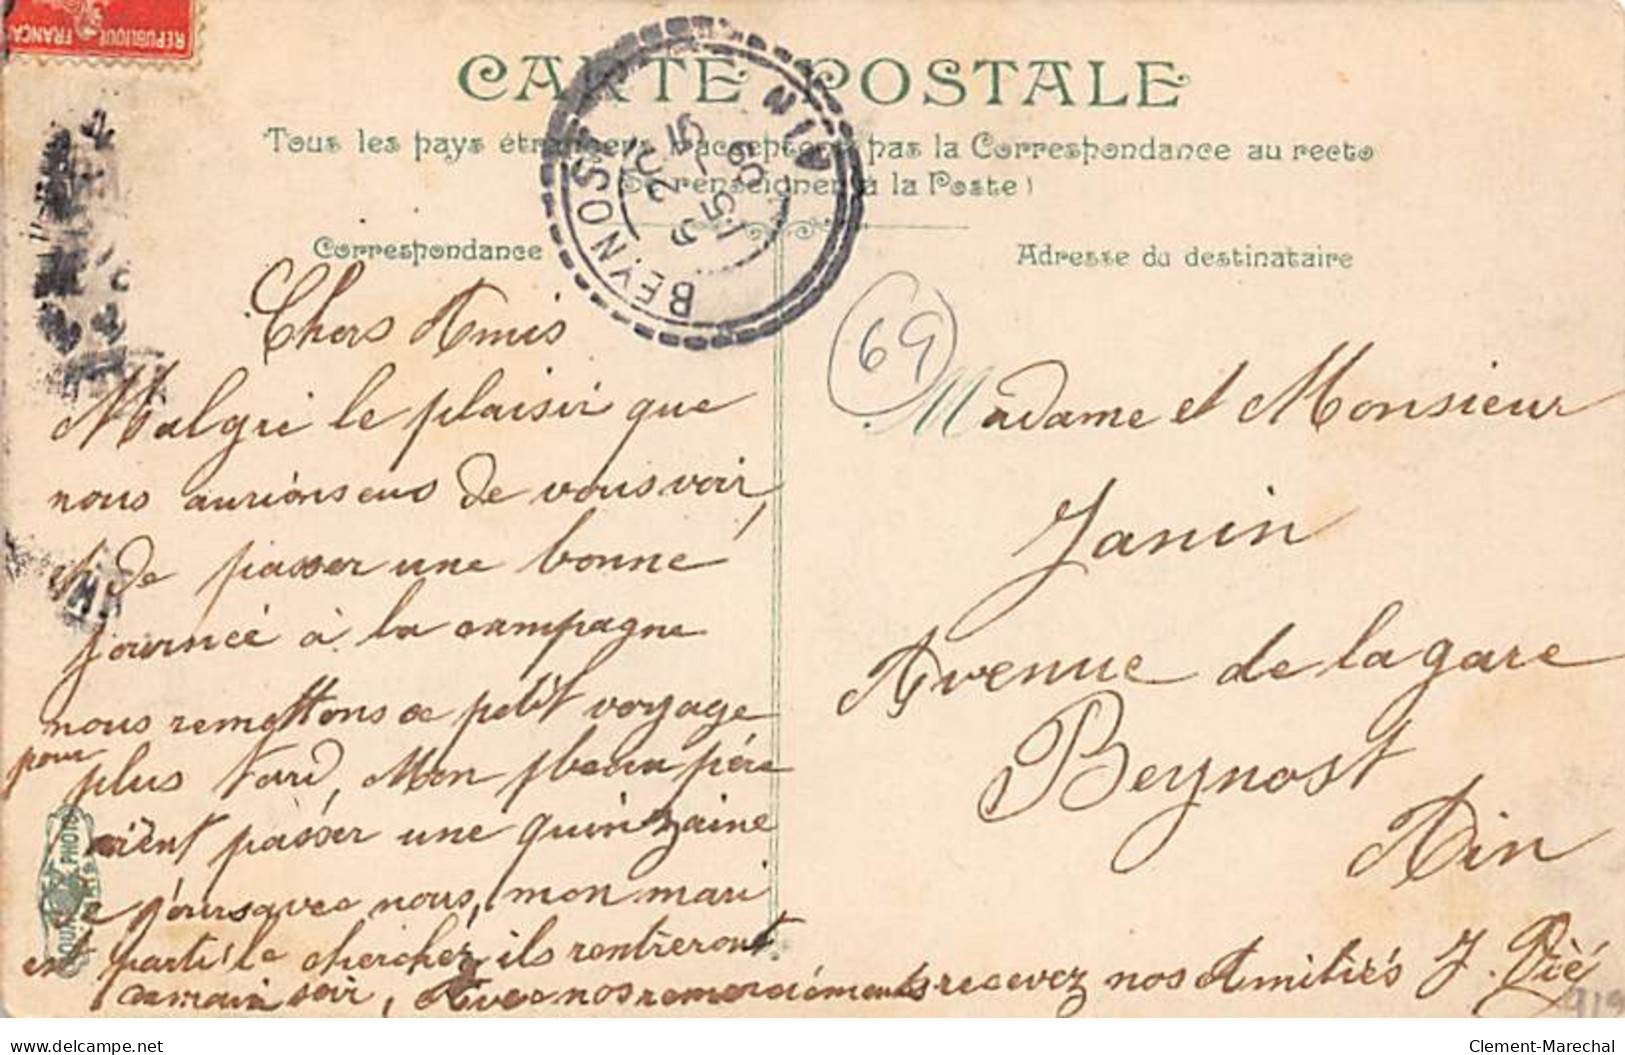 REPUBLIQUE FRANCA
CARTE POSTALE
Tous les pays étrangers n'acceptent pas la Correspondance au recto
(Se renseigner à la Poste)
BEYNOST
AIN
15 - 5
09
Correspondance
Adresse du destinataire
69
Chers Amis
Malgri le plaisir que
nous aurions eus de vous voir,
et de passer une bonne
journée à la campagne
nous remettons ce petit voyage
pour plus tard, Mon beau père
vient passer une quinzaine
de jours avec nous, mon mari
est parti le chercher, ils rentreront
demain soir, Avec nos remerciements recevez nos Amitiés J. Dié
Madame et Monsieur
Janin
Avenue de la gare
Beynost
Ain
PHOTO
delcampe.net
Clement-Marechal